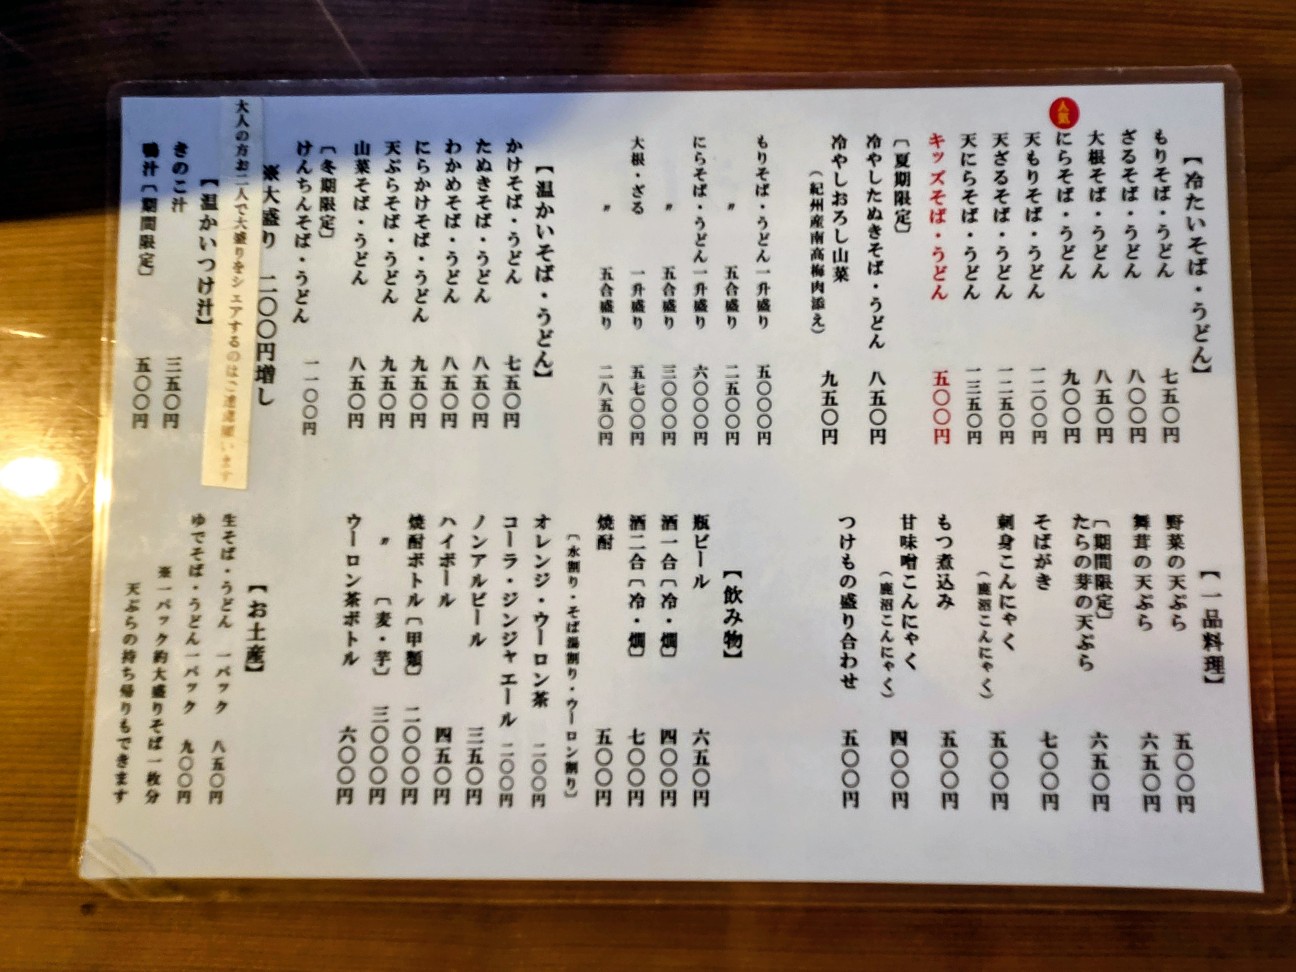 【冷たいそば・うどん】
もりそば・うどん 七五〇円
ざるそば・うどん 八〇〇円
大根そば・うどん 八五〇円
人気
にらそば・うどん 九〇〇円
天もりそば・うどん 一二〇〇円
天ざるそば・うどん 一二五〇円
天にらそば・うどん 一三五〇円
キッズそば・うどん 五〇〇円
〔夏期限定〕
冷やしたぬきそば・うどん 八五〇円
冷やしおろし山菜 九五〇円
(紀州産南高梅肉添え)
もりそば・うどん 一升盛り 五〇〇〇円
〃 五合盛り 二五〇〇円
にらそば・うどん 一升盛り 六〇〇〇円
〃 五合盛り 三〇〇〇円
大根・ざる 一升盛り 五七〇〇円
〃 五合盛り 二八五〇円
【温かいそば・うどん】
かけそば・うどん 七五〇円
たぬきそば・うどん 八五〇円
わかめそば・うどん 八五〇円
にらかけそば・うどん 九五〇円
天ぷらそば・うどん 九五〇円
山菜そば・うどん 八五〇円
〔冬期限定〕
けんちんそば・うどん 一一〇〇円
※大盛り 二〇〇円増し
大人の方お二人で大盛りをシェアするのはご遠慮願います
【温かいつけ汁】
きのこ汁 三五〇円
鴨汁〔期間限定〕 五〇〇円
【一品料理】
野菜の天ぷら 五〇〇円
舞茸の天ぷら 六五〇円
〔期間限定〕
たらの芽の天ぷら 六五〇円
そばがき 七〇〇円
刺身こんにゃく 五〇〇円
(鹿沼こんにゃく)
もつ煮込み 五〇〇円
甘味噌こんにゃく 四〇〇円
(鹿沼こんにゃく)
つけもの盛り合わせ 五〇〇円
【飲み物】
瓶ビール 六五〇円
酒一合〔冷・燗〕 四〇〇円
酒二合〔冷・燗〕 七〇〇円
焼酎 五〇〇円
〔水割り・そば湯割り・ウーロン割り〕
オレンジ・ウーロン茶 二〇〇円
コーラ・ジンジャエール 二〇〇円
ノンアルビール 三五〇円
ハイボール 四五〇円
焼酎ボトル〔甲類〕 二〇〇〇円
〃 〔麦・芋〕 三〇〇〇円
ウーロン茶ボトル 六〇〇円
【お土産】
生そば・うどん 一パック 八五〇円
ゆでそば・うどん一パック 九〇〇円
※一パック約大盛りそば一枚分
天ぷらの持ち帰りもできます